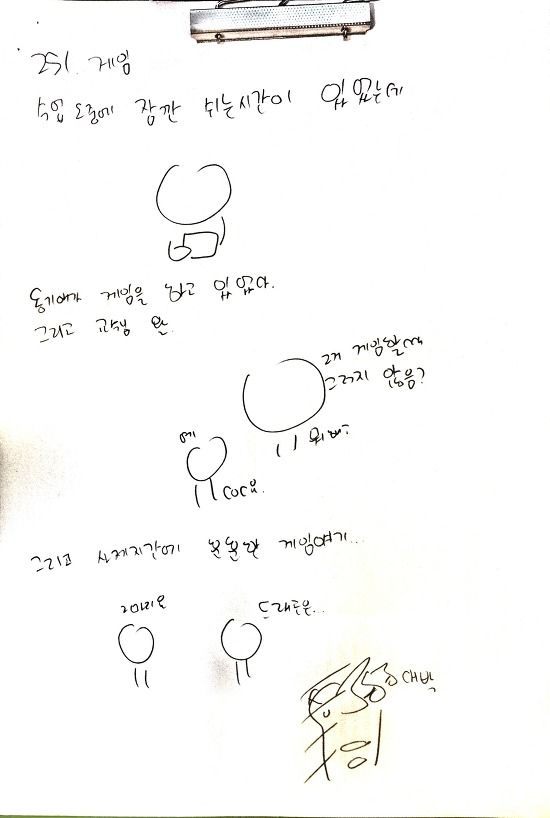 251. 게임
수업 도중에 잠깐 쉬는시간이 있었는데
동기애가 게임을 하고 있었다.
그리고 교수님 왈
걔 게임할때
그러지 않음?
예
COC요.
그리고 사제지간에 훈훈한 게임얘기...
재미요
드래곤은..
대박